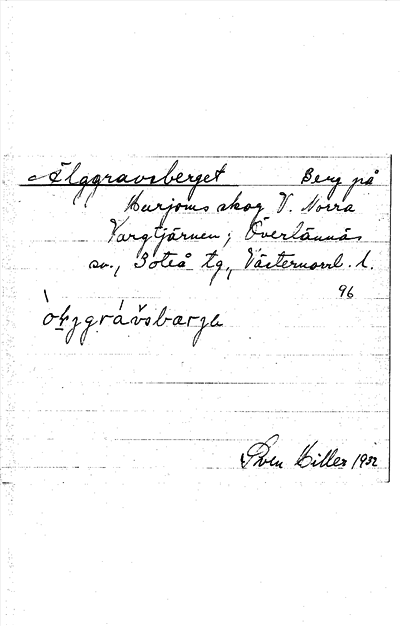 Älggravsberget Berg på
Murjoms skog V. Norra
Vargtjärnen; Överlännäs
sn., Boteå tg., Västernorrl. l.
96
Sven Hiller 1932